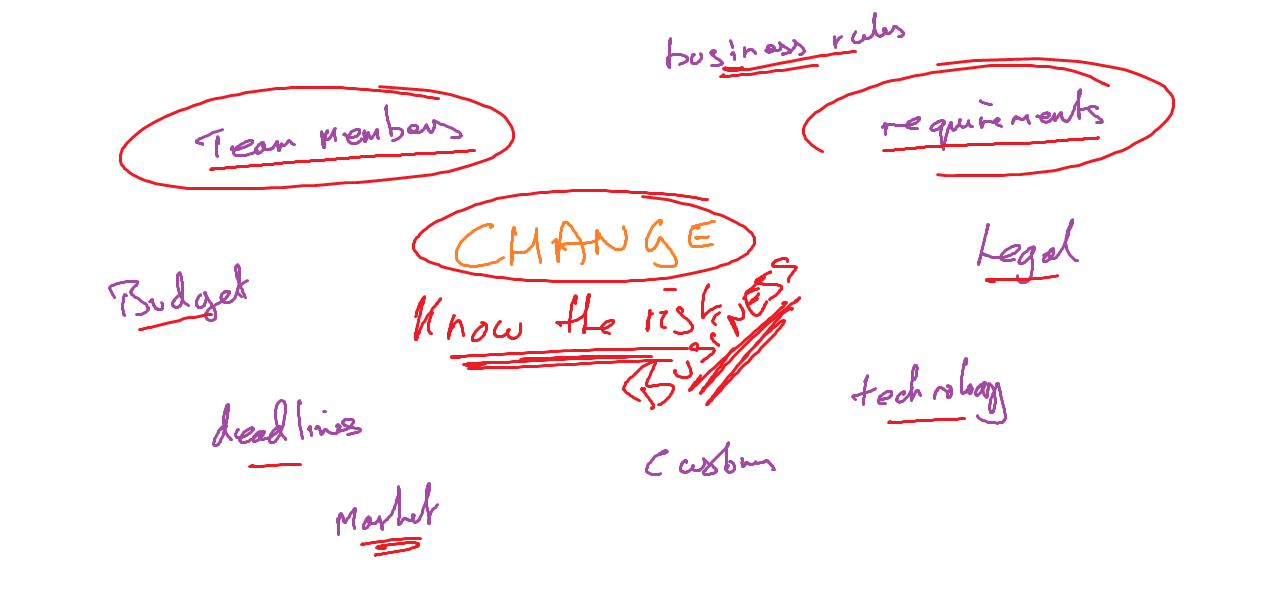 business rules
Team Members
requirements
CHANGE
Legal
Budget
Know the risk
BUSINESS
technology
deadlines
Market